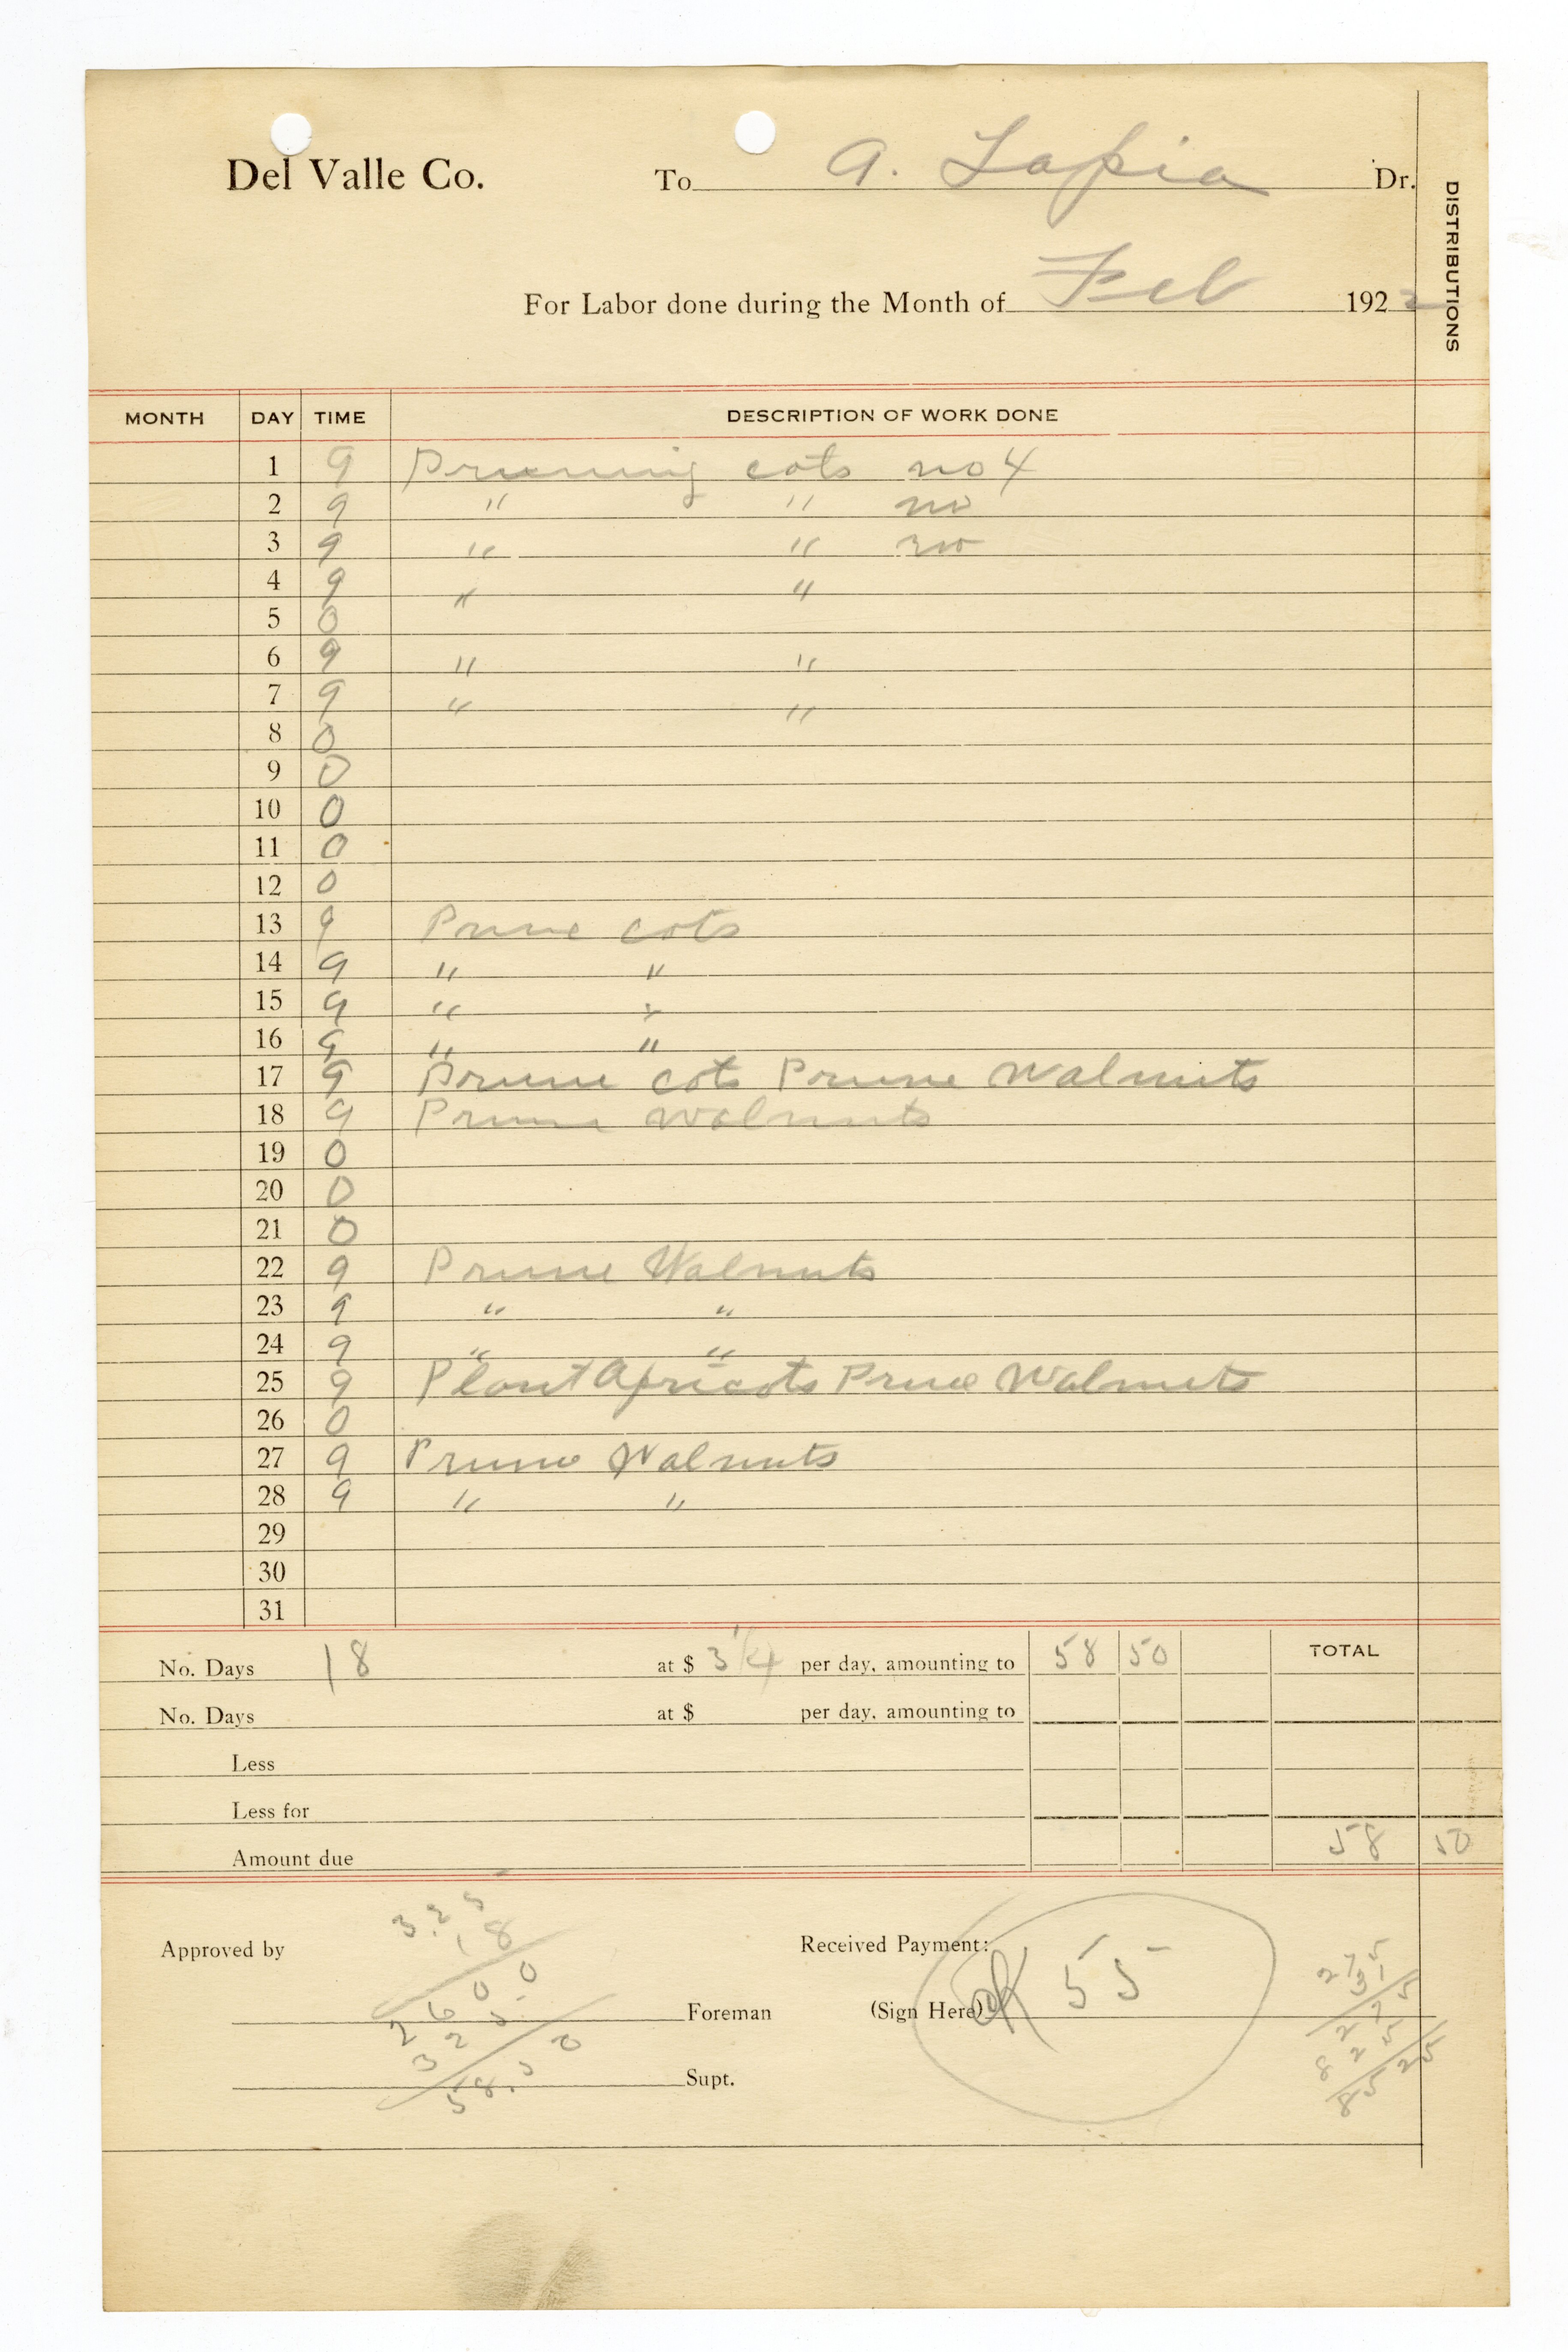 Del Valle Co. To A. Tapia Dr.
DISTRIBUTIONS
For Labor done during the Month of Feb 1922
MONTH DAY TIME DESCRIPTION OF WORK DONE
1 9 Pruning cots no 4
2 9 " " no
3 9 " " no
4 9 " "
5 0
6 9 " "
7 9 " "
8 0
9 0
10 0
11 0
12 0
13 9 Prune cots
14 9 " "
15 9 " "
16 9 " "
17 9 Prune cots Prune Walnuts
18 9 Prune walnuts
19 0
20 0
21 0
22 9 Prune Walnuts
23 9 " "
24 9 " "
25 9 Plant Apricots Prune Walnuts
26 0
27 9 Prune Walnuts
28 9 " "
29
30
31
No. Days 18 at $ 3 1/4 per day, amounting to 58 50 TOTAL
No. Days at $ per day, amounting to
Less
Less for
Amount due 58 50
3.25
18
Approved by Received Payment:
2600
325
58.50
Foreman (Sign Here) OK 55
Supt.
275
31
275
825
8525